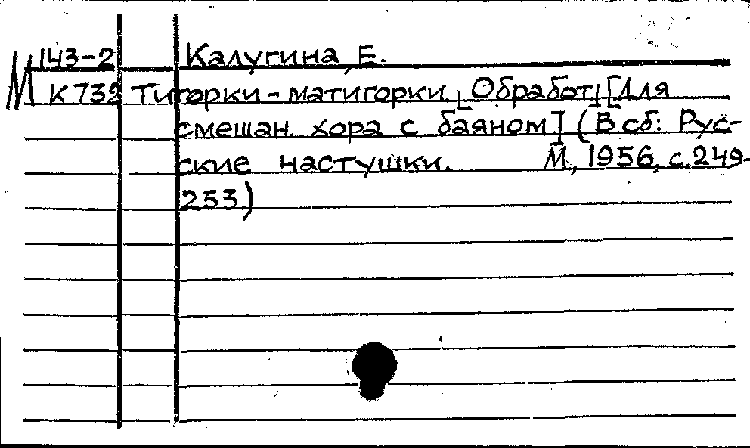 М 143-2 Калугина, Е.
К 732 Тигорки - матигорки. [Обработ.] [Для
смешан. хора с баяном] (В сб: Рус-
ские настушки. М., 1956, с. 249-
253)